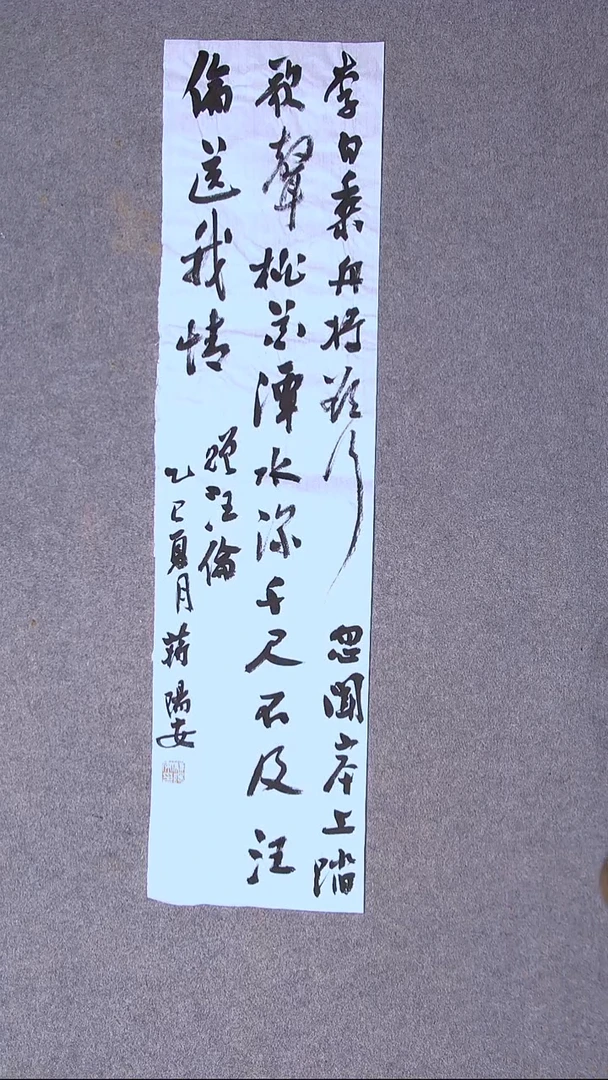 李白乘舟将欲行忽聞岸上踏
歌聲桃花潭水深千尺不及汪
倫送我情
贈汪倫
乙巳夏月蒋陽安